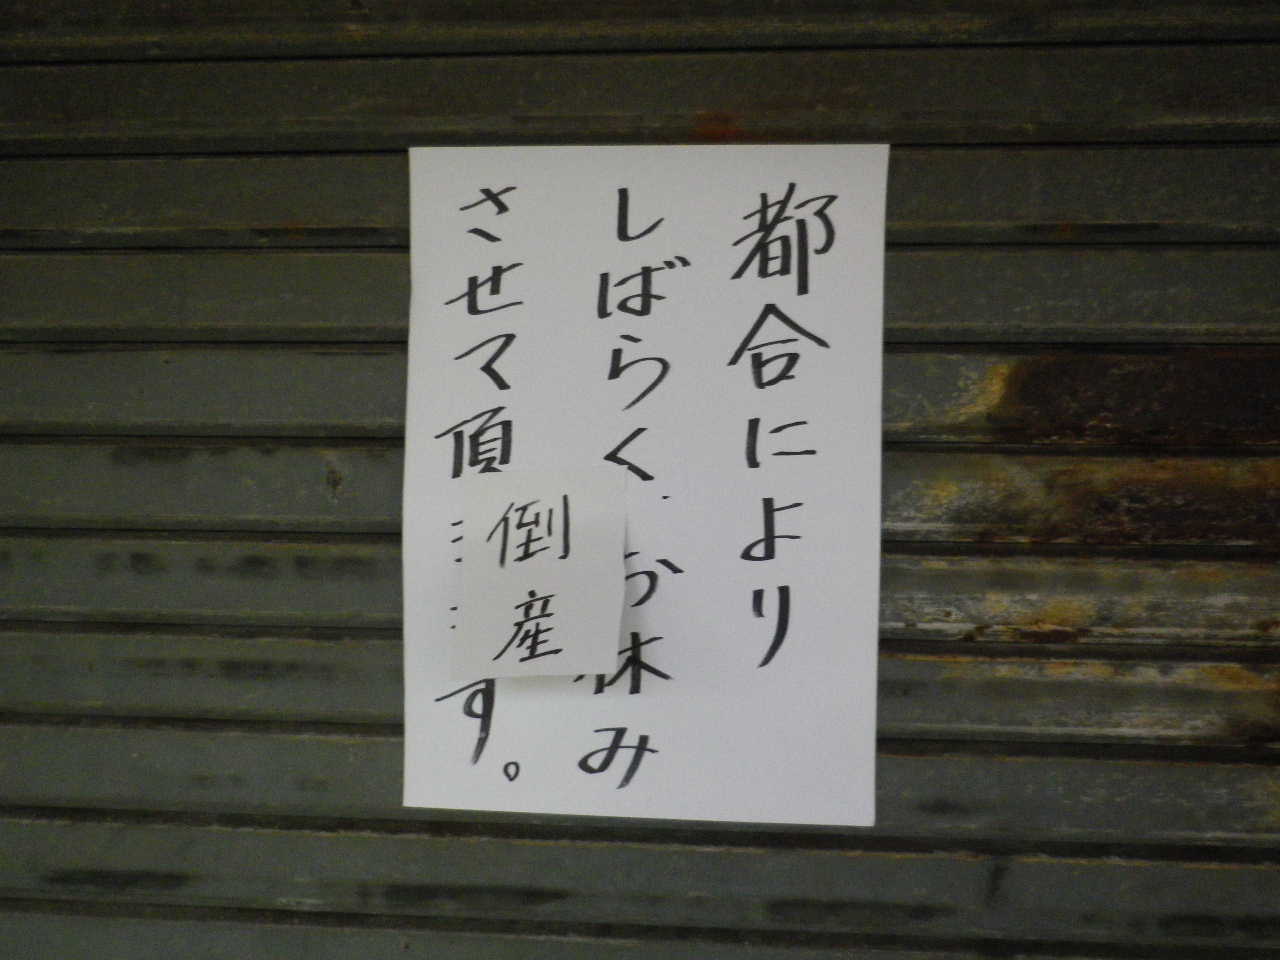 都合により
しばらくお休み
させて頂す。
倒産